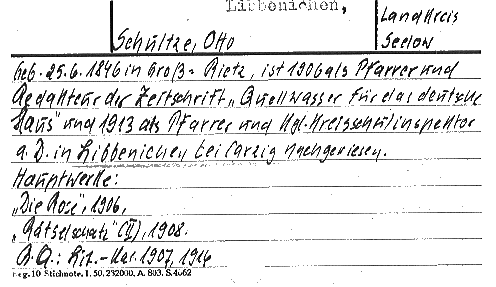 Libbenichen,
Landkreis
Schultze, Otto
Seelow
Geb. 25.6.1846 in Groß-Rietz, ist 1906 als Pfarrer und
Redakteur der Zeitschrift „Quellwasser für das deutsche
Haus" und 1913 als Pfarrer und Kgl. Kreisschulinspektor
a. D. in Libbenichen bei Carzig nachgewiesen.
Hauptwerke:
„Die Rose", 1906,
„Rätselschatz" (II), 1908.
B.Q.: Lit.-Kal. 1907, 1916
Reg. 10 Stichnotr. I. 50. 232000. A. 803. S. 4062